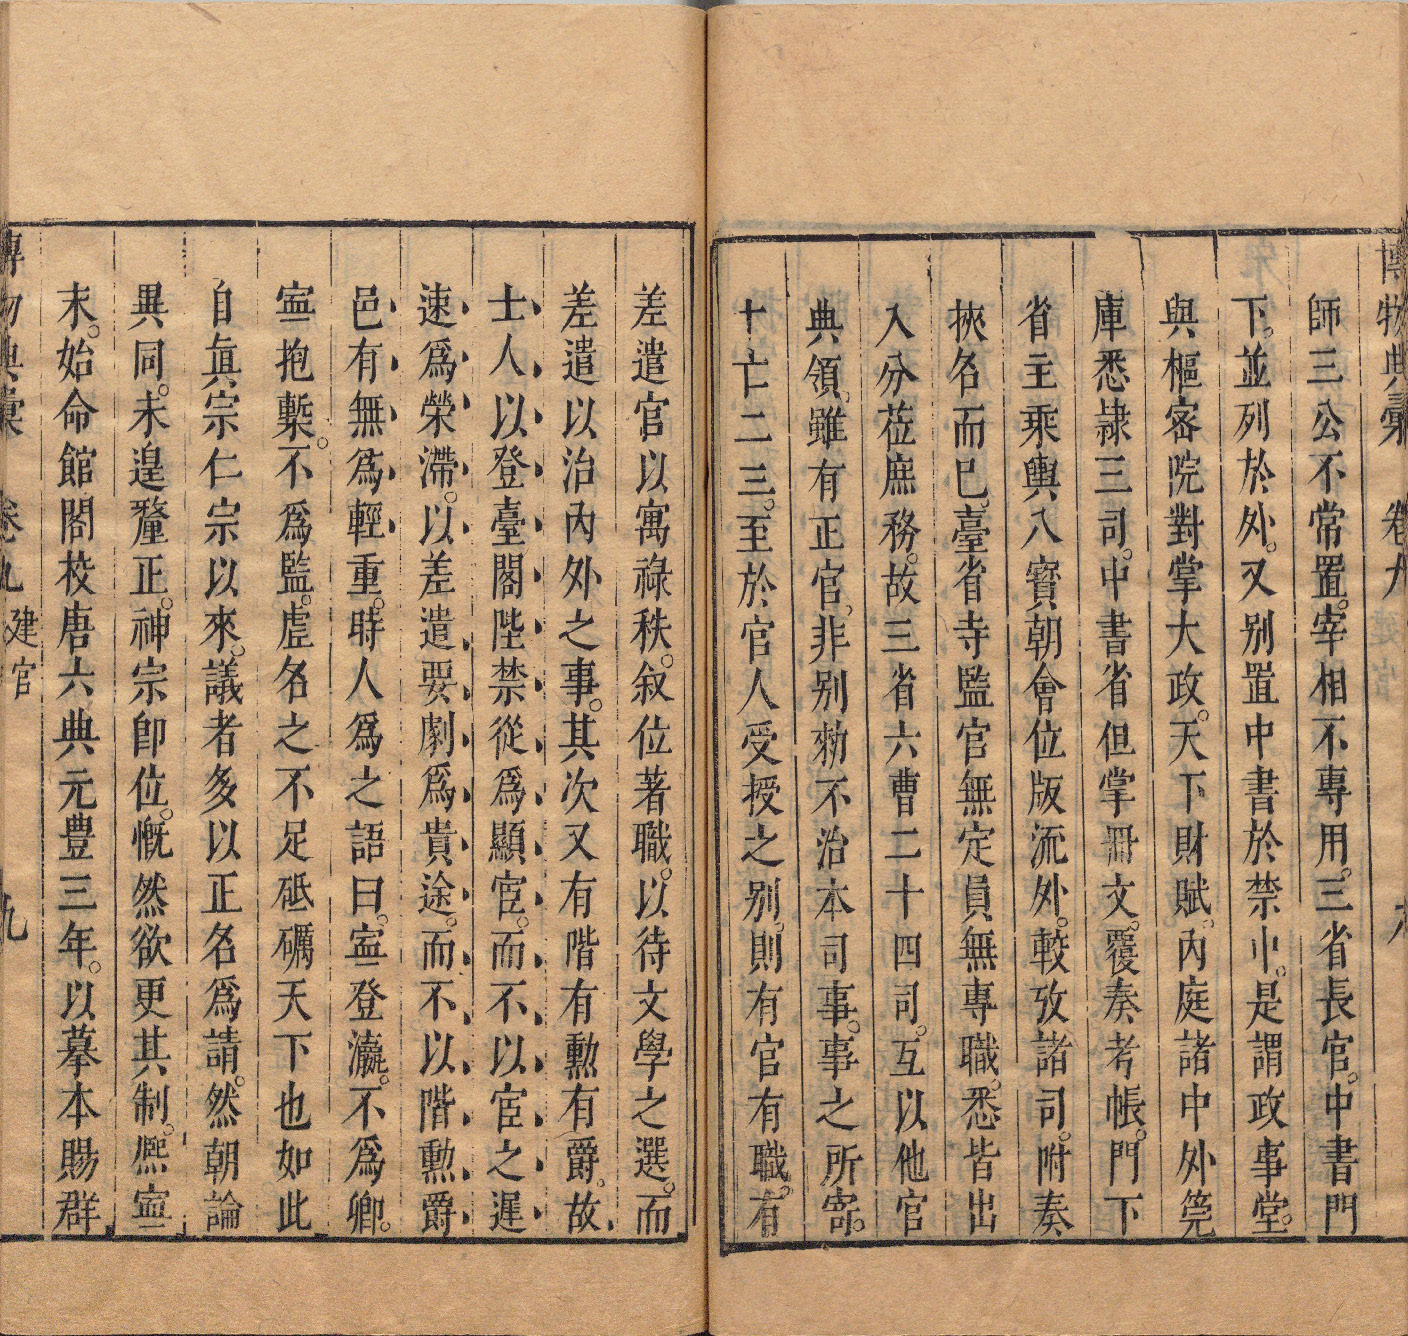 博物典彙 卷九
師三公不常置。宰相不專用。三省長官。中書門
下。並列於外。又別置中書於禁中。是謂政事堂。
與樞密院對掌大政。天下財賦。內庭諸中外筦
庫悉隷三司。中書省但掌冊文。覆奏考帳。門下
省主乘輿八寶朝會位版流外。較攷諸司。附奏
挾名而已。臺省寺監官無定員無專職。悉皆出
入分莅庶務。故三省六曹二十四司。互以他官
典領。雖有正官。非别勑不治本司事。事之所寄。
十亡二三。至於官人受授之别。則有官有職。有
差遣官以寓祿秩。敘位著職。以待文學之選。而
差遣以治內外之事。其次又有階有勳有爵。故
士人以登臺閣陞禁從爲顯宦。而不以官之遲
速爲榮滯。以差遣要劇爲貴途。而不以階勳爵
邑有無爲輕重。時人爲之語曰。寍登瀛。不爲卿。
寍抱槧。不爲監。虛名之不足砥礪天下也如此
自眞宗仁宗以來。議者多以正名爲請。然朝論
異同。未遑釐正。神宗卽位。慨然欲更其制。熈寍
末。始命館閣校唐六典元豊三年。以摹本賜群
博物典彙 卷九 建官 九